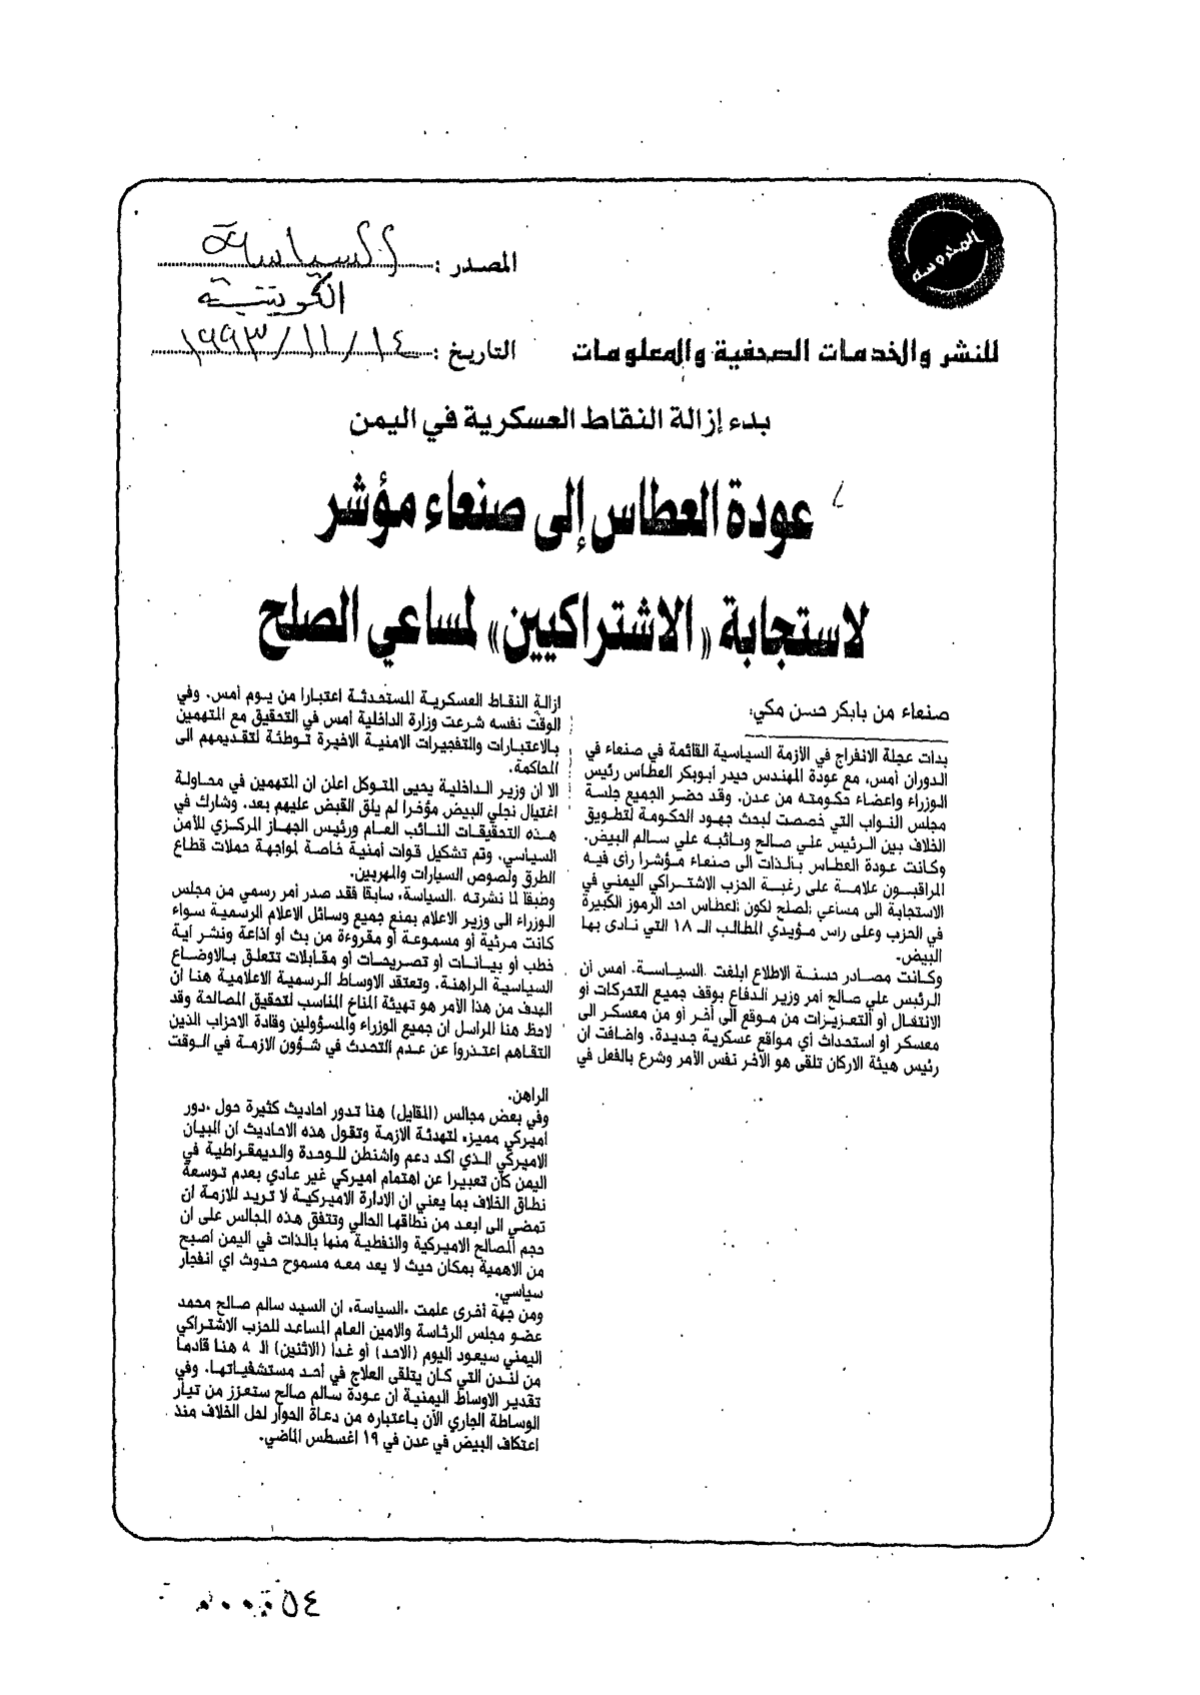 المحروسة
المصدر : السياسة
الكويتية
للنشر والخدمات الصحفية والمعلومات
التاريخ : ١٩٩٣/١١/١٤
بدء إزالة النقاط العسكرية في اليمن
عودة العطاس إلى صنعاء مؤشر
لاستجابة «الاشتراكيين» لمساعي الصلح
صنعاء من بابكر حسن مكي:
بدات عجلة الانفراج في الأزمة السياسية القائمة في صنعاء في
الدوران أمس، مع عودة المهندس حيدر أبوبكر العطاس رئيس
الوزراء واعضاء حكومته من عدن. وقد حضر الجميع جلسة
مجلس النواب التي خصصت لبحث جهود الحكومة لتطويق
الخلاف بين الرئيس علي صالح ونائبه علي سالم البيض.
وكانت عودة العطاس بالذات الى صنعاء مؤشرا رأى فيه
المراقبون علامة على رغبة الحزب الاشتراكي اليمني في
الاستجابة الى مساعي الصلح لكون العطاس احد الرموز الكبيرة
في الحزب وعلى راس مؤيدي المطالب الـ ١٨ التي نادى بها
البيض.
وكانت مصادر حسنة الاطلاع ابلغت «السياسة» أمس أن
الرئيس علي صالح أمر وزير الدفاع بوقف جميع التحركات أو
الانتقال أو التعزيزات من موقع الى أخر أو من معسكر الى
معسكر أو استحداث أي مواقع عسكرية جديدة. واضافت ان
رئيس هيئة الاركان تلقى هو الآخر نفس الأمر وشرع بالفعل في
ازالة النقاط العسكرية المستحدثة اعتبارا من يوم أمس. وفي
الوقت نفسه شرعت وزارة الداخلية امس في التحقيق مع المتهمين
بالاعتبارات والتفجيرات الامنية الاخيرة توطئة لتقديمهم الى
المحاكمة.
الا ان وزير الداخلية يحيى المتوكل اعلن ان المتهمين في محاولة
اغتيال نجلي البيض مؤخرا لم يلق القبض عليهم بعد. وشارك في
هذه التحقيقات النائب العام ورئيس الجهاز المركزي للأمن
السياسي. وتم تشكيل قوات أمنية خاصة لمواجهة حملات قطاع
الطرق ولصوص السيارات والمهربين.
وطبقا لما نشرته «السياسة» سابقا فقد صدر أمر رسمي من مجلس
الوزراء الى وزير الاعلام بمنع جميع وسائل الاعلام الرسمية سواء
كانت مرئية أو مسموعة أو مقروءة من بث او اذاعة ونشر اية
خطب أو بيانات أو تصريحات أو مقابلات تتعلق بالاوضاع
السياسية الراهنة. وتعتقد الاوساط الرسمية الاعلامية هنا ان
الهدف من هذا الأمر هو تهيئة المناخ المناسب لتحقيق المصالحة وقد
لاحظ هنا المراسل ان جميع الوزراء والمسؤولين وقادة الاحزاب الذين
التقاهم اعتذروا عن عدم التحدث في شؤون الازمة في الوقت
الراهن.
وفي بعض مجالس (المقايل) هنا تدور احاديث كثيرة حول «دور
اميركي مميز» لتهدئة الازمة وتقول هذه الاحاديث ان البيان
الاميركي الذي اكد دعم واشنطن للوحدة والديمقراطية في
اليمن كان تعبيرا عن اهتمام اميركي غير عادي بعدم توسعة
نطاق الخلاف بما يعني ان الادارة الاميركية لا تريد للازمة ان
تمضي الى ابعد من نطاقها الحالي وتتفق هذه المجالس على ان
حجم المصالح الاميركية والنفطية منها بالذات في اليمن اصبح
من الاهمية بمكان حيث لا يعد معه مسموح حدوث اي انفجار
سياسي.
ومن جهة أخرى علمت «السياسة» ان السيد سالم صالح محمد
عضو مجلس الرئاسة والامين العام المساعد للحزب الاشتراكي
اليمني سيعود اليوم (الاحد) أو غدا (الاثنين) الى هنا قادما
من لندن التي كان يتلقى العلاج في أحد مستشفياتها. وفي
تقدير الاوساط اليمنية ان عودة سالم صالح ستعزز من تيار
الوساطة الجاري الآن باعتباره من دعاة الحوار لحل الخلاف منذ
اعتكاف البيض في عدن في ١٩ اغسطس الماضي.